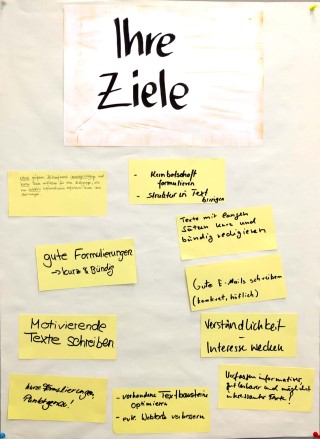 Ihre
Ziele
- Kernbotschaft
formulieren
- Struktur in Text
bringen
Texte mit langen
Sätzen kurz und
bündig redigieren
gute Formulierungen
→ kurz & Bündig
Gute E-Mails schreiben
(konkret, höflich)
Motivierende
Texte schreiben
Verständlichkeit
-
Interesse wecken
kurze Formulierungen,
Punktgenau!
- vorhandene Textbausteine
optimieren
- evtl. Webtexte verbessern
Verfassen informativer,
gut lesbarer und möglichst
interessanter Texte!